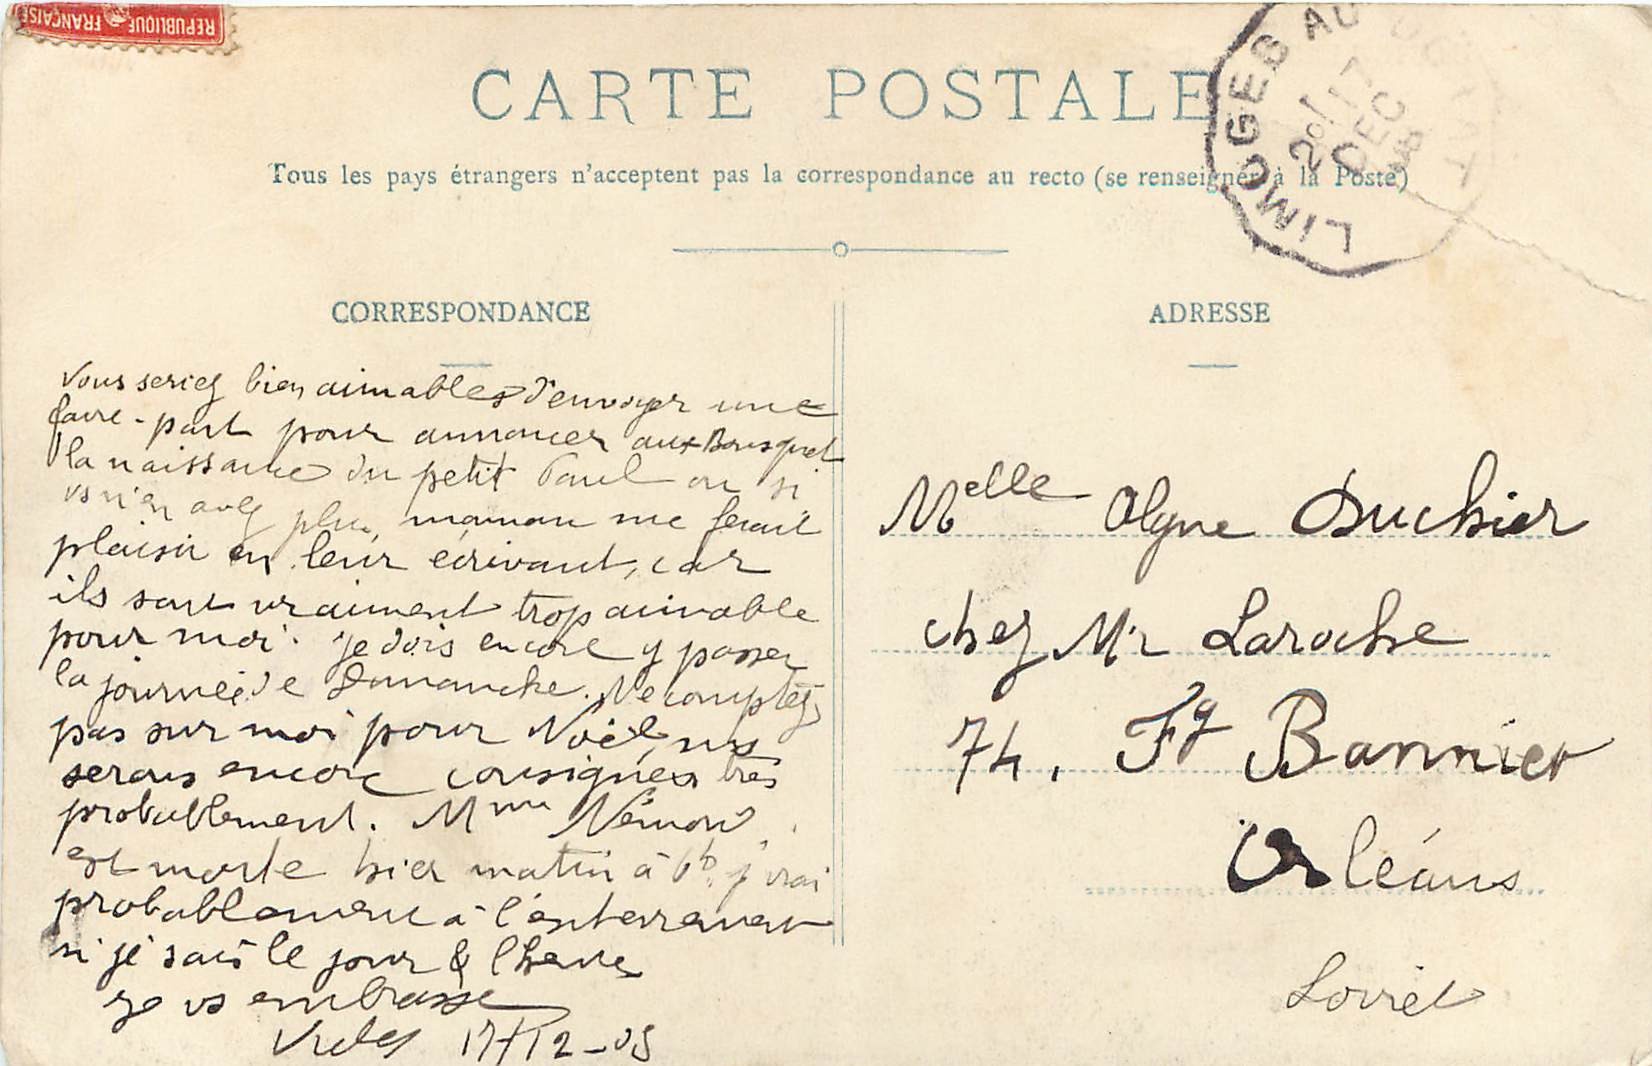 REPUBLIQUE FRANÇAISE
CARTE POSTALE
Tous les pays étrangers n'acceptent pas la correspondance au recto (se renseigner à la Poste)
LIMOGES AU
17
DEC
CORRESPONDANCE
Vous seriez bien aimables d'envoyer une
faire-part pour annoncer aux Bousquet
la naissance du petit Paul ou si
vs n'en avez plus, maman me ferait
plaisir en leur écrivant, car
ils sont vraiment trop aimable
pour moi. je dois encore y passer
la journée de Dimanche. Ne comptez
pas sur moi pour Noël, ns
serons encore consignés très
probablement. Mme
est morte hier matin à 6h. j'irai
probablement à l'enterrement
si je sais le jour & l'heure
je vs embrasse
17/12-05
ADRESSE
Melle Olgne Duchier
chez Mr Laroche
74, Fg Bannier
Orléans
Loiret